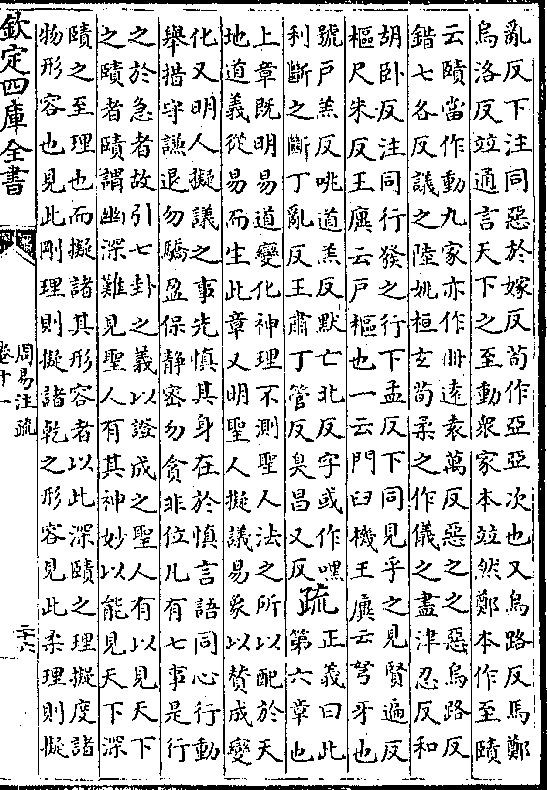 亂反下注同惡於嫁反荀作亞亞次也又烏路反馬鄭
烏洛反竝通言天下之至動衆家本竝然鄭本作至賾
云賾當作動九家亦作冊逺袁萬反惡之之惡烏路反
錯七各反議之陸姚桓玄荀柔之作儀之盡津忍反和
胡卧反注同行發之行下孟反下同見乎之見賢遍反
樞尺朱反王廙云户樞也一云門臼機王廙云弩牙也
號户羔反咷道羔反默亡北反字或作嘿
利斷之斷丁亂反王肅丁管反臭昌又反
疏
正義曰此
第六章也
上章既明易道變化神理不測聖人法之所以配於天
地道義從易而生此章又明聖人擬議易象以賛成變
化又明人擬議之事先慎其身在於慎言語同心行動
舉措守謙退勿驕盈保静密勿貪非位凡有七事是行
之於急者故引七卦之義以證成之聖人有以見天下
之賾者賾謂幽深難見聖人有其神妙以能見天下深
賾之至理也而擬諸其形容者以此深賾之理擬度諸
物形容也見此剛理則擬諸乾之形容見此柔理則擬
欽定四庫全書
周易注疏
卷十一
二十六